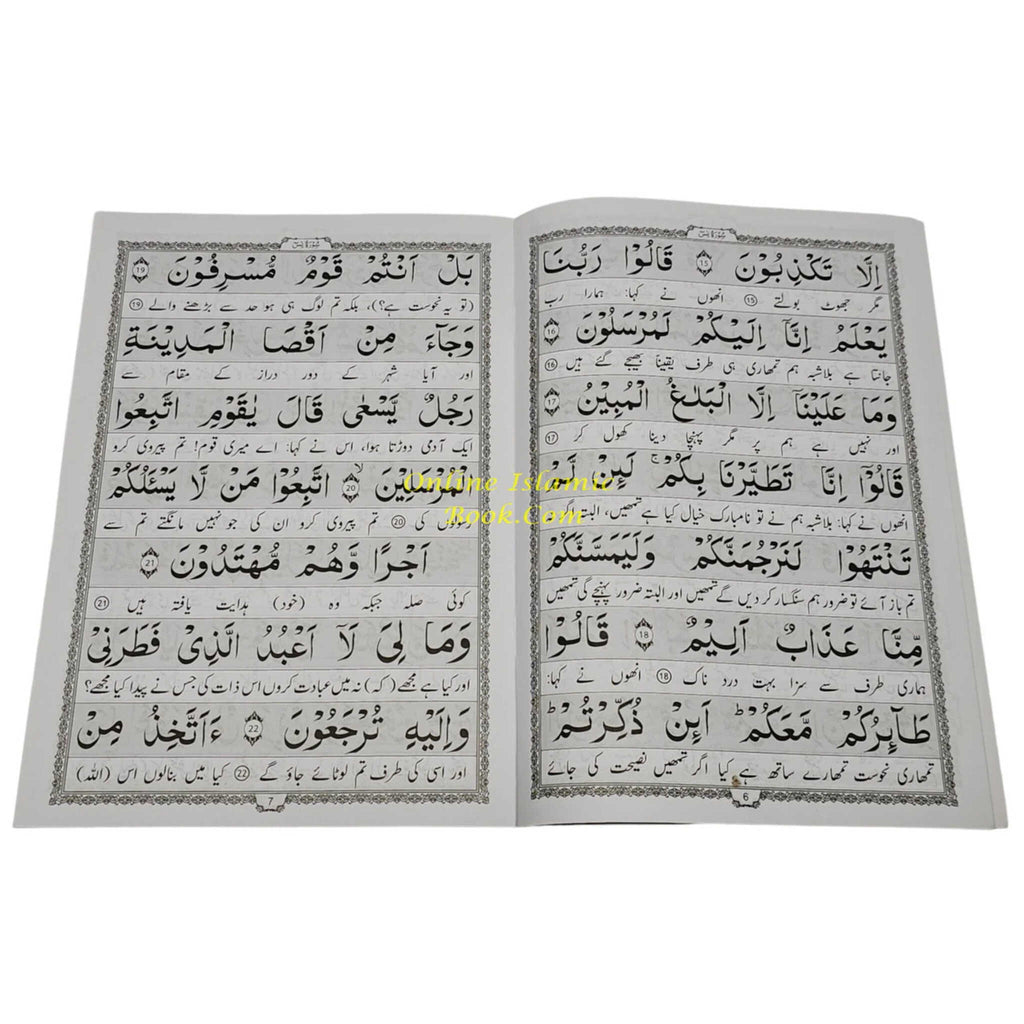 سُوْرَةُ يٰسٓ
اِلَّا تَكْذِبُوْنَ 15 قَالُوْا رَبُّنَا
مگر جھوٹ بولتے 15 انھوں نے کہا: ہمارا رب
يَعْلَمُ اِنَّاۤ اِلَيْكُمْ لَمُرْسَلُوْنَ 16
جانتا ہے بلاشبہ ہم تمھاری ہی طرف یقیناً بھیجے گئے ہیں 16
وَمَا عَلَيْنَاۤ اِلَّا الْبَلٰغُ الْمُبِيْنُ 17
اور نہیں ہے ہم پر مگر پہنچا دینا کھول کر 17
قَالُوْۤا اِنَّا تَطَيَّرْنَا بِكُمْ ۚ لَىِٕنْ لَّمْ
انھوں نے کہا: بلاشبہ ہم نے تو نامبارک خیال کیا ہے تمھیں، البتہ اگر
تَنْتَهُوْا لَنَرْجُمَنَّكُمْ وَلَيَمَسَّنَّكُمْ
تم باز آئے تو ضرور ہم سنگسار کر دیں گے تمھیں اور البتہ ضرور پہنچے گی تمھیں
مِّنَّا عَذَابٌ اَلِيْمٌ 18 قَالُوْا
ہماری طرف سے سزا بہت درد ناک 18 انھوں نے کہا:
طَآىِٕرُكُمْ مَّعَكُمْ ؕ اَىِٕنْ ذُكِّرْتُمْ ؕ
تمھاری نحوست تمھارے ساتھ ہے کیا اگر تمھیں نصیحت کی جائے
6
سُوْرَةُ يٰسٓ
بَلْ اَنْتُمْ قَوْمٌ مُّسْرِفُوْنَ 19
(تو یہ نحوست ہے؟)، بلکہ تم لوگ ہی ہو حد سے بڑھنے والے 19
وَجَآءَ مِنْ اَقْصَا الْمَدِيْنَةِ
اور آیا شہر کے دور دراز کے مقام سے
رَجُلٌ يَّسْعٰى قَالَ يٰقَوْمِ اتَّبِعُوا
ایک آدمی دوڑتا ہوا، اس نے کہا: اے میری قوم! تم پیروی کرو
الْمُرْسَلِيْنَ ۙ 20 اتَّبِعُوْا مَنْ لَّا يَسْـَٔلُكُمْ
رسولوں کی 20 تم پیروی کرو ان کی جو نہیں مانگتے تم سے
اَجْرًا وَّهُمْ مُّهْتَدُوْنَ 21
کوئی صلہ جبکہ وہ (خود) ہدایت یافتہ ہیں 21
وَمَا لِىَ لَاۤ اَعْبُدُ الَّذِىْ فَطَرَنِىْ
اور کیا ہے مجھے (کہ) نہ میں عبادت کروں اس ذات کی جس نے پیدا کیا مجھے؟
وَاِلَيْهِ تُرْجَعُوْنَ 22 ءَاَتَّخِذُ مِنْ
اور اسی کی طرف تم لوٹائے جاؤ گے 22 کیا میں بنالوں اس (اللہ)
7
Online Islamic
Book.Com